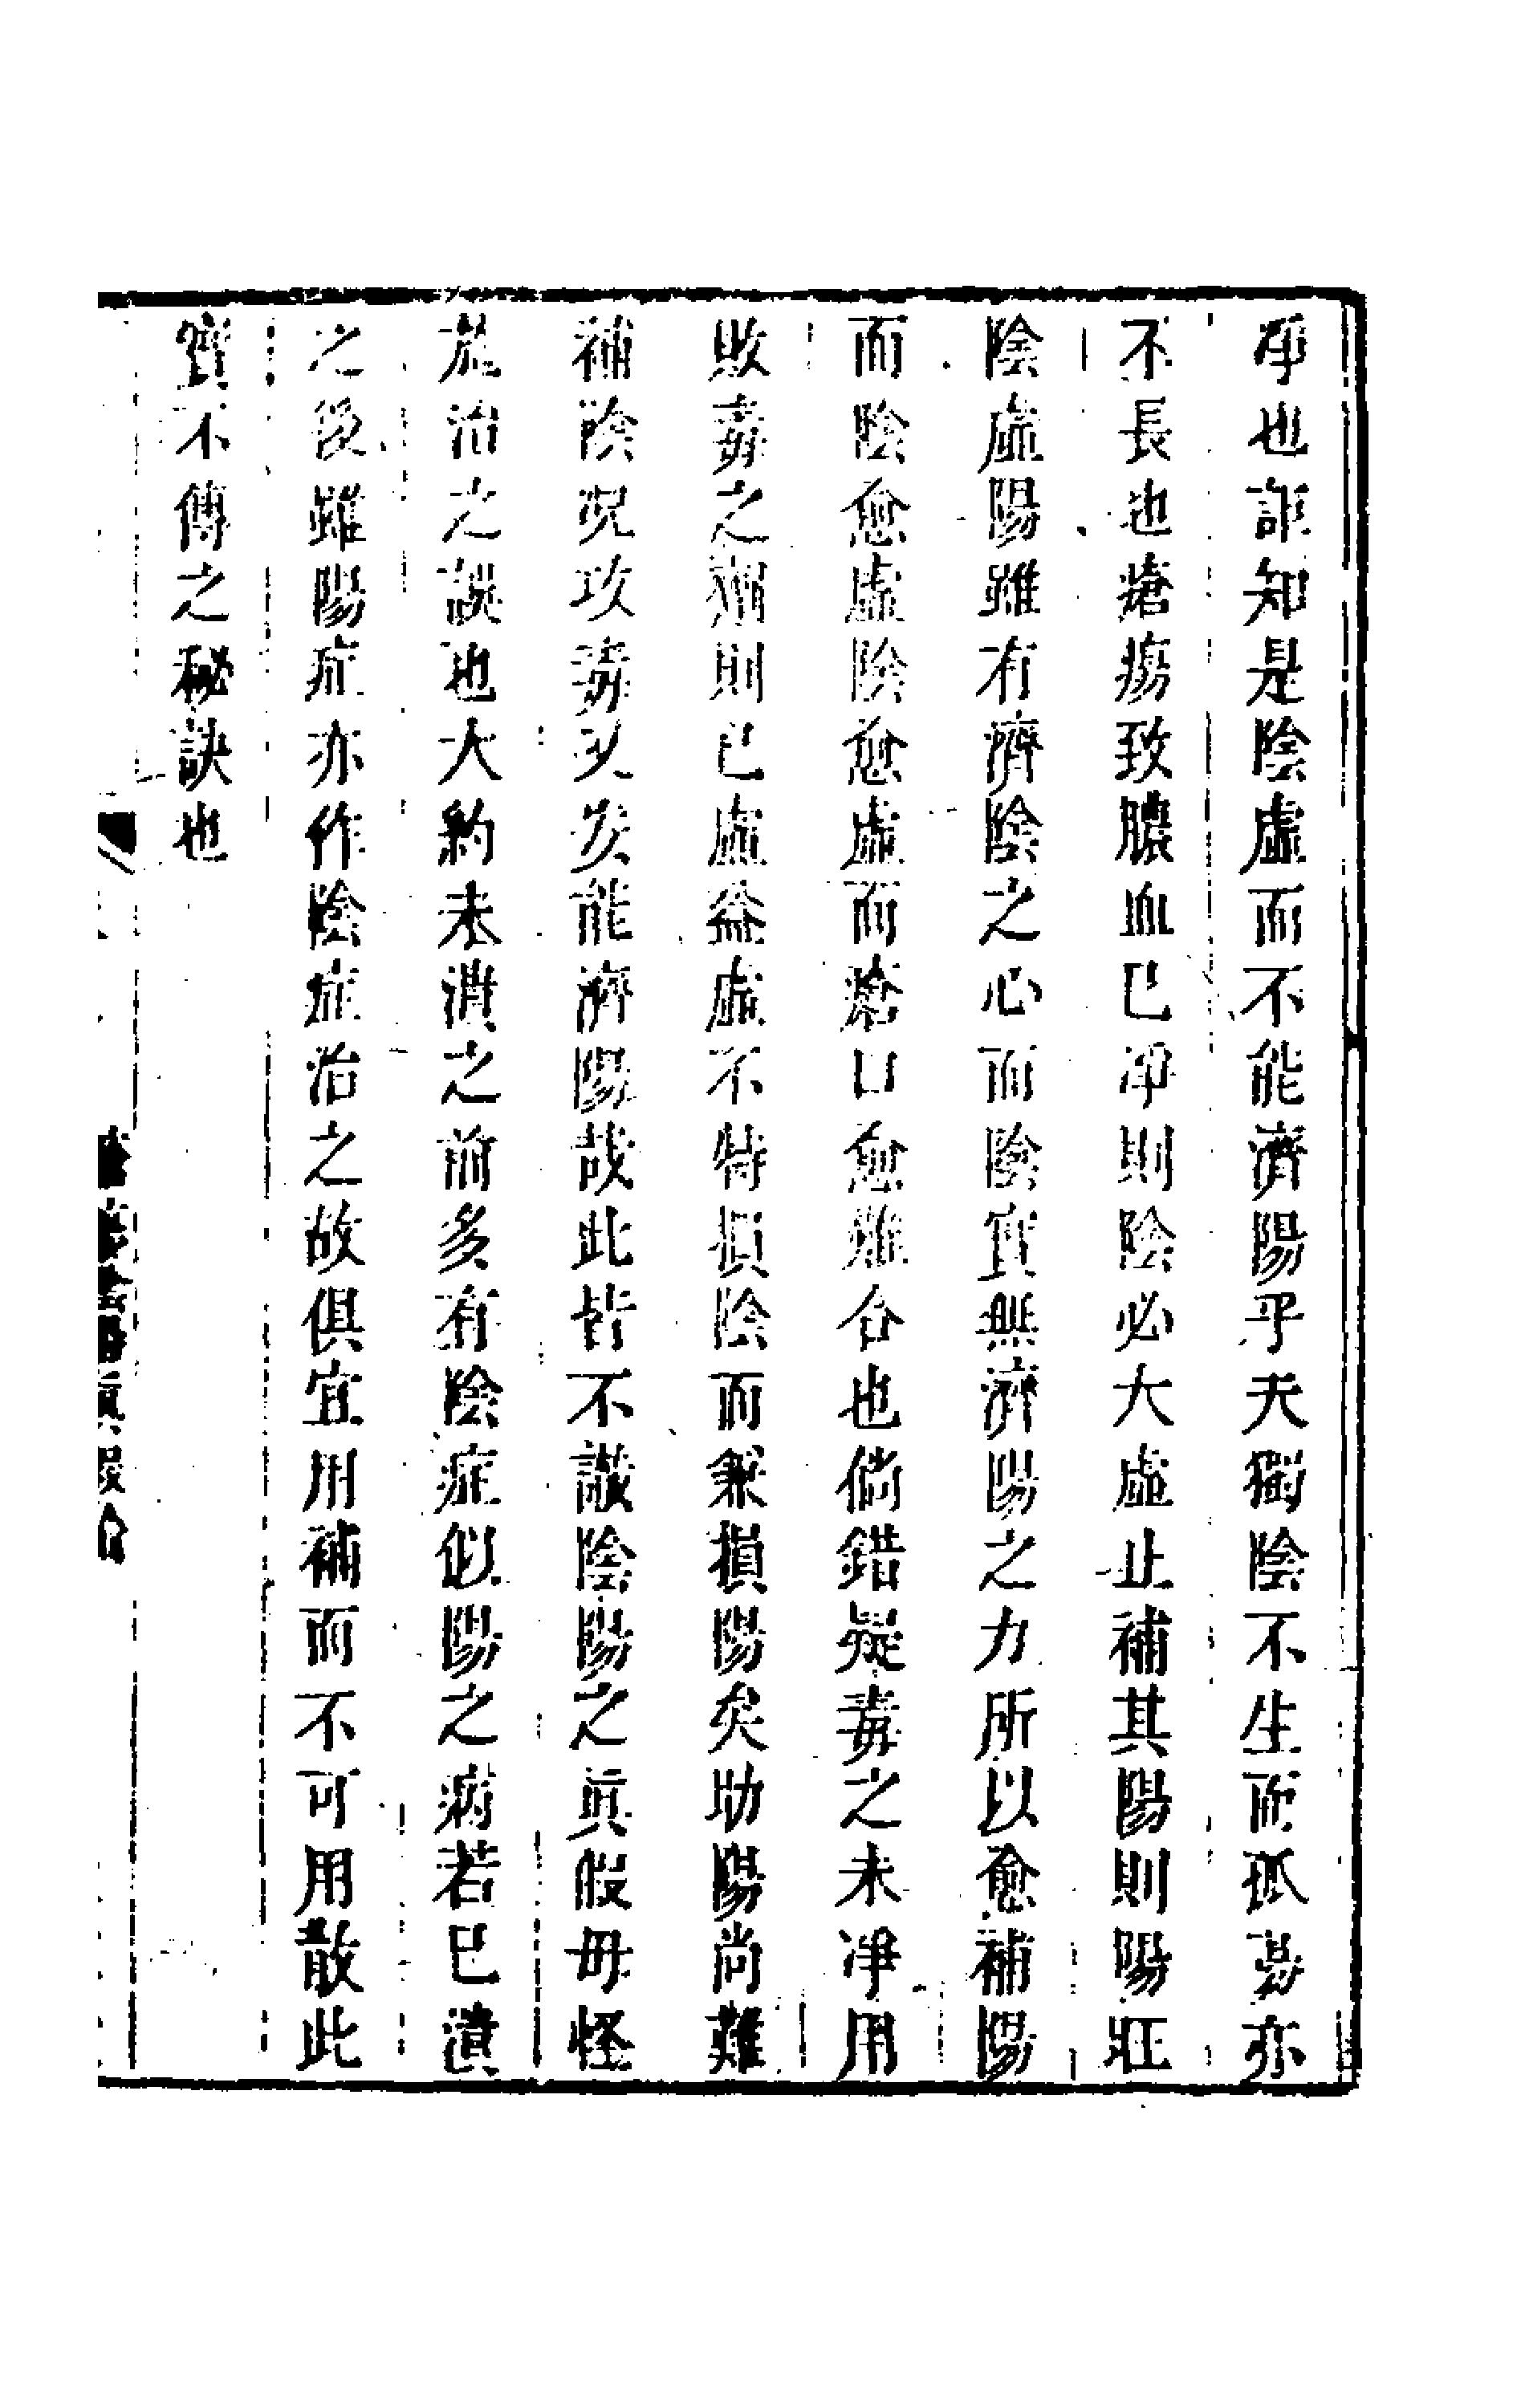 淨也詎知是陰虛而不能濟陽乎夫獨陰不生而孤陽亦
不長也瘡瘍致膿血已淨則陰必大虛止補其陽則陽旺
陰虛陽雖有濟陰之心而陰實無濟陽之力所以愈補陽
而陰愈虛陰愈虛而瘡口愈難合也倘錯疑毒之未凈用
敗毒之劑則已虛益虛不特損陰而兼損陽矣助陽尚難
補陰況攻毒又安能濟陽哉此皆不識陰陽之眞假毋怪
於治之誤也大約未潰之前多有陰症似陽之病若已潰
之後雖陽症亦作陰症治之故俱宜用補而不可用散此
實不傳之秘訣也
眞假論